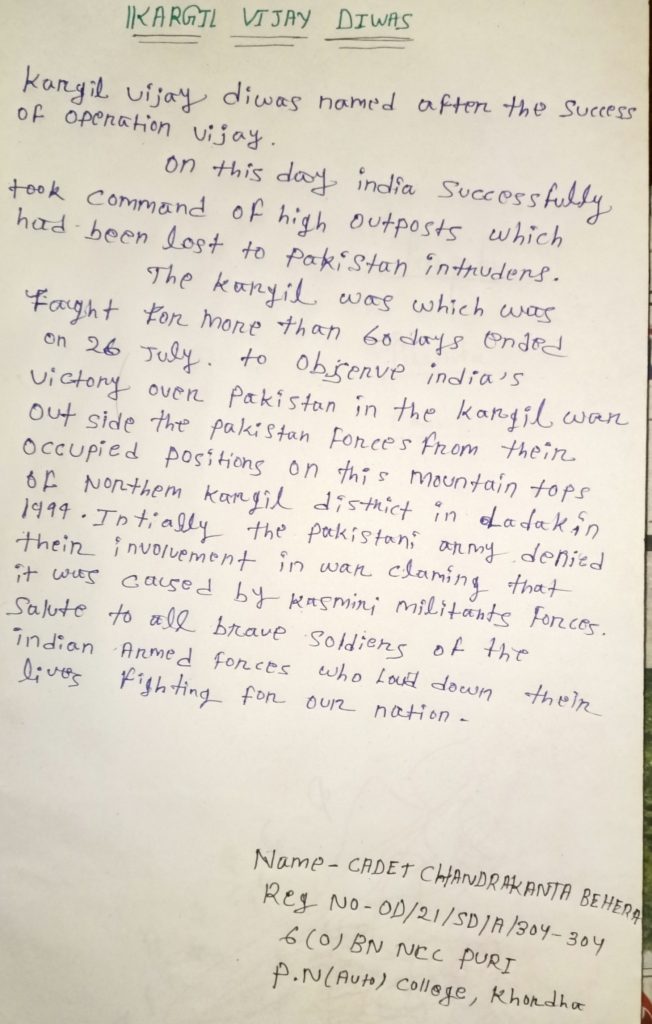 KARGIL VIJAY DIWAS
Kargil vijay diwas named after the success
of operation vijay.
on this day india successfully
took command of high outposts which
had been lost to Pakistan intruders.
The kargil was which was
Faught for more than 60 days ended
on 26 July. to observe india's
victory over Pakistan in the kargil war
out side the pakistan forces from their
occupied positions on this mountain tops
of Northem kargil district in Ladakin
1999. Intially the pakistani army denied
their involvement in war claming that
it was caused by kasmiri militants forces.
Salute to all brave soldiers of the
indian Armed forces who laid down their
lives fighting for our nation.
Name - CADET CHANDRAKANTA BEHERA
Reg NO - OD/21/SD/A/304-304
6 (O) BN NCC PURI
P.N (Auto) College, Khordha